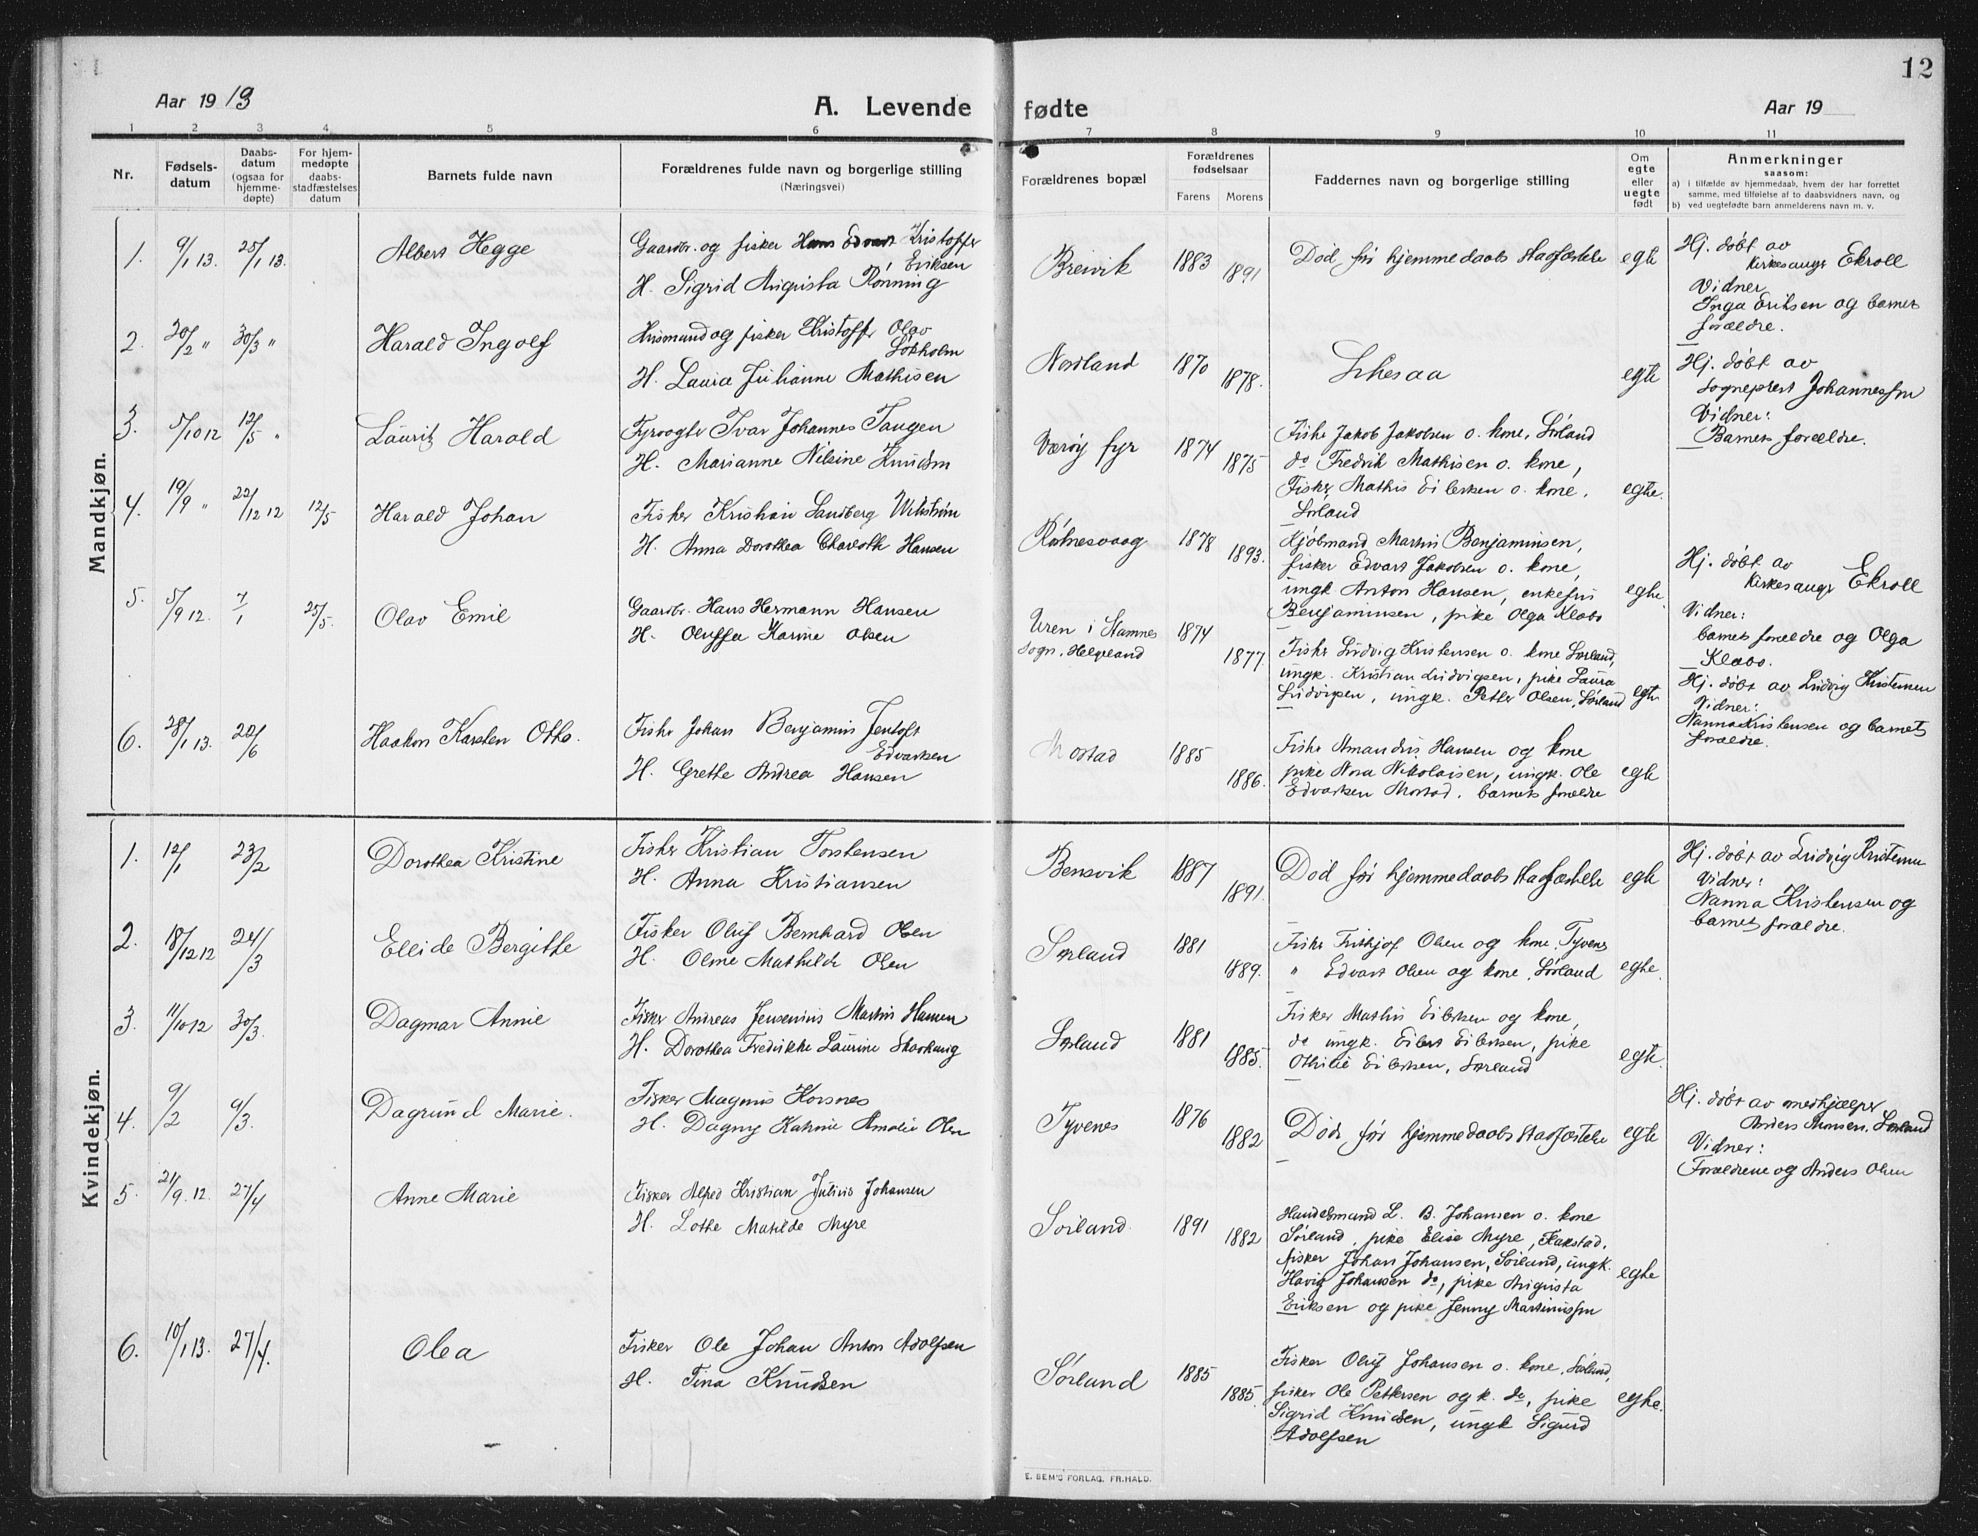 12
Aar 1913
A. Levende fødte
Aar 19
1 2 3 4 5 6 7 8 9 10 11
Nr.
Fødsels-
datum
Daabs-
datum
(ogsaa for
hjemme-
døpte)
For hjem-
medøpte
daabs-
stadfæstelses
datum
Barnets fulde navn
Forældrenes fulde navn og borgerlige stilling
(Næringsvei)
Forældrenes bopæl
Forældrenes
fødselsaar
Farens Morens
Faddernes navn og borgerlige stilling
Om
egte
eller
uegte
født
Anmerkninger
saasom:
a) i tilfælde av hjemmedaab, hvem der har forrettet
samme, med tilføielse af to daabsvidners navn, og
b) ved uegtefødte barn anmelderens navn m. v.
Mandkjøn.
1. 9/1 13. 25/1 13. Albert Hegge
Gaardbr. og fisker Hans Edvart Kristoffer
Eriksen
H. Sigrid Augusta Rønning
Breivik 1883 1891
Død før hjemmedaabs stadfæstelse egte
Hj. døbt av
Kirkesanger Ekroll
Vidner
Inga Eriksen og barnets
forældre.
2. 20/2 " 30/3 " Harald Ingolf
Husmand og fisker Kristoffer Olav
Sørholm
H. Laura Julianne Mathisen
Nordland 1870 1878.
Likesaa egte
Hj. døbt av
Sogneprest Johannessen
Vidner:
Barnets forældre.
3. 5/10 12 12/5 " Lauritz Harald
Fyrvogter Ivar Johannes Tangen
H. Marianne Nilsine Knudsen
Værøy fyr 1874 1875
Fisker Jakob Jakobsen o. kone, Sørland
do Fredrik Mathisen o. kone,
Fisker Mathis Eilertsen o. kone.
Sørland
egte.
4. 19/9 " 22/12 12 12/5 Harald Johan
Fisker Kristian Sandberg Wikstrøm
H. Anna Dorothea Charlotte Hansen
Røknesvaag 1878 1893.
Kjøbmand Martin Benjaminsen,
fisker Edvart Jakobsen o. kone,
ungk Anton Hansen, enkefru
Benjaminsen, pike Olga Klabo
egte.
Hj. døbt av
Kirkesanger Ekroll
Vidner:
barnets forældre og Olga
Klabo.
5. 5/9 12. 7/1 25/5. Olav Emil
Gaardbr. Hans Hermann Hansen
H. Oluffa Karine Olsen
Uren i Stamnes
Sogn, Helgeland
1874 1877.
Fisker Ludvig Kristensen o. kone Sørland,
ungk. Kristian Ludvigsen, pike Laura
Ludvigsen, ungk. Petter Olsen, Sørland
egte
Hj. døbt av Ludvig Kristensen
Vidner:
Nanna Kristensen og barnets
forældre.
6. 28/1 13. 22/6 Haakon Karsten Otto.
Fisker Johan Benjamin Jentoft
Edvartsen
H. Grethe Andrea Hansen
Mostad 1885 1886.
Fisker Amandus Hansen og kone
pike Nora Nikolaisen, ungk. Ole
Edvartsen Mostad, barnets forældre
egte
Kvindekjøn.
1. 12/1 23/2 Dorothea Kristine
Fisker Kristian Torstensen
H. Anna Kristiansen
Bensvik 1887 1891.
Død før hjemmedaabs stadfæstelse egte
Hj. døbt av Ludvig Kristensen
Vidner:
Nanna Kristensen og
barnets forældre.
2. 18/12 12 24/3 Ellide Bergitte
Fisker Oluf Bernhard Olsen
H. Oline Mathilde Olsen
Sørland 1881 1889.
Fisker Fritjof Olsen og kone, Tyvenes
" Edvart Olsen og kone, Sørland egte.
3. 11/10 12 30/3. Dagmar Annie
Fisker Andreas Jensenius Martin Hansen
H. Dorothea Fredrikke Laurine Skarhaug
Sørland 1881 1885.
Fisker Mathis Eilertsen og kone,
do ungk. Eilert Eilertsen, pike
Othilie Eilertsen, Sørland
egte.
4. 9/2 9/3. Dagrund Marie.
Fisker Magnus Korsnes
H. Dagny Katrine Amalie Olsen
Tyvenes 1876 1882
Død før hjemmedaabs stadfæstelse egte
Hj. døbt av medhjælper
Anders Monsen, Sørland
Vidner:
Forældrene og Anders Olsen
5. 21/9. 12. 27/4 Anne Marie
Fisker Alfred Kristian Julius Johansen
H. Lothe Matilde Myre
Sørland. 1891 1882
Handelsmand L. B. Johansen o. kone
Sørland, pike Elise Myre, Flakstad,
fisker Johan Johansen, Sørland, ungk.
Havig Johansen do, pike Augusta
Eriksen og pike Jenny Martinussen
egte
6. 10/1 13. 27/4. Olea
Fisker Ole Johan Anton Adolfsen
H. Tina Knudsen
Sørland 1885 1885.
Fisker Oluf Johansen o. kone, Sørland,
fisker Ole Pettersen og k. do, pike
Sigrid Knudsen, ungk Sigurd
Adolfsen
egte.
E. SEM'S FORLAG, FR.HALD.